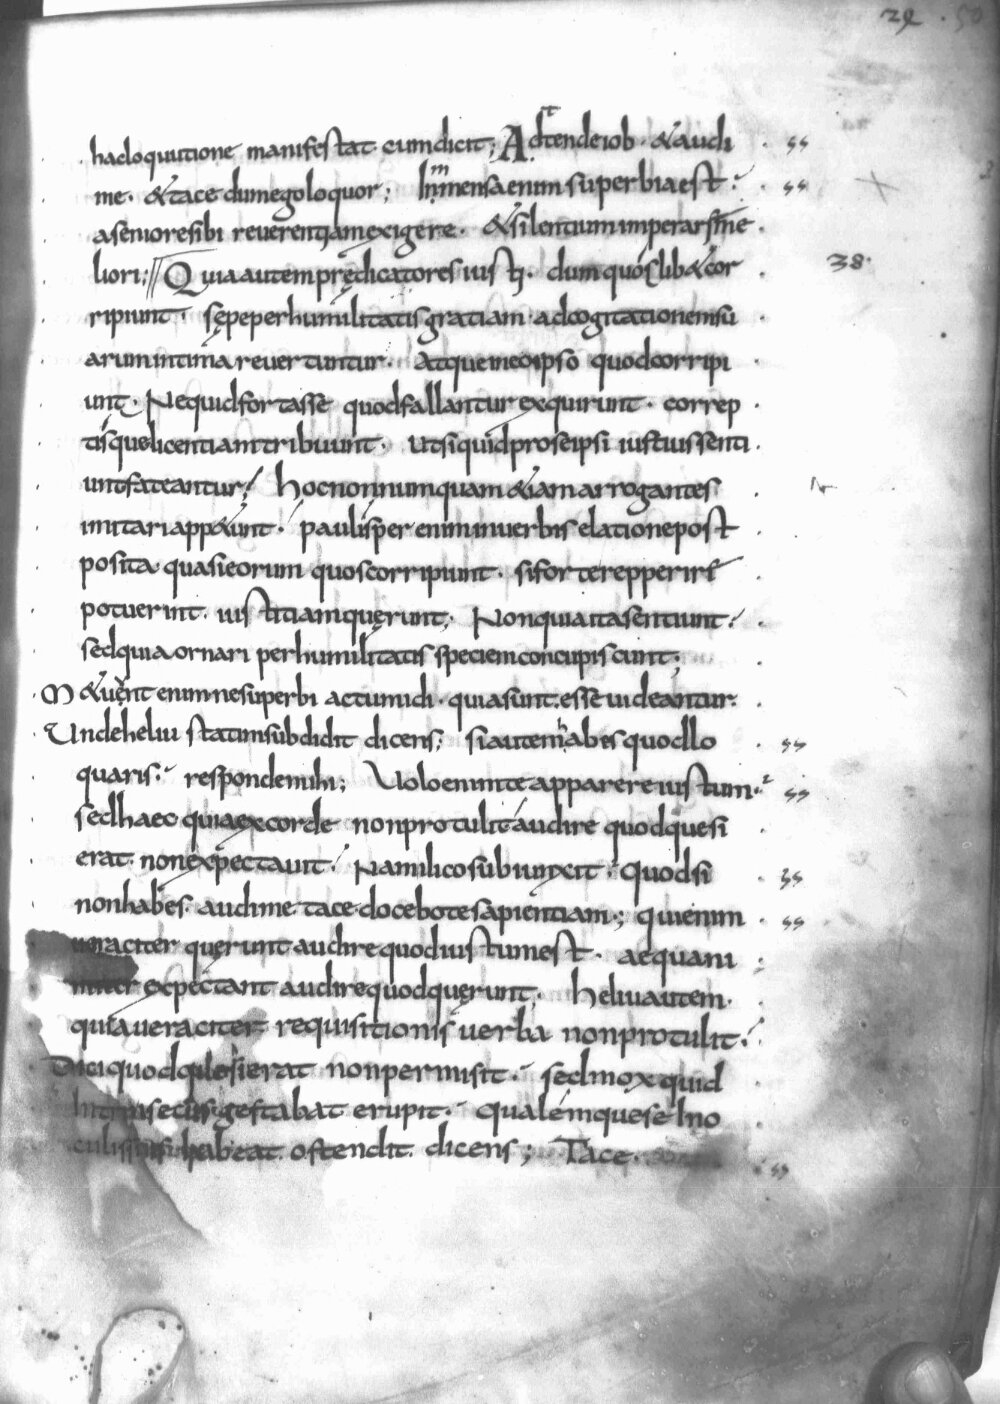 29 . 50
hac locutione manifestat cum dicit; Adtende iob · & audi
me · & tace dum ego loquor; Inmensa enim superbia est ·
a seniore sibi reuerentiam exigere · & silentium imperare me
liori; Quia autem prędicatores iusti · dum quoslib& cor 38·
ripiunt · sępe per humilitatis gratiam · ad cogitationem su
arum intima reuertuntur · Atque in eo ipso quod corripi
unt · Ne quid fortasse quod fallantur exquirunt · correp
tisque licentiam tribuunt · ut si quid pro se ipsi iustius senti
unt fateantur; hoc nonnumquam &iam arrogantes
imitari app&unt · paulisper enim in uerbis elatione post
posita quasi eorum quos corripiunt · si forte repperire
potuerint · iustitiam quęrunt; Non quia ita sentiunt ·
sed quia ornari per humilitatis speciem concupiscunt;
M&uent enim ne superbi ac tumidi · quia sunt · esse uideantur ·
Unde heliu statim subdidit dicens; si autem habes quod lo
quaris · responde mihi; Uolo enim te apparere iustum ·
sed haec quia ex corde non protulit audire quod quesi
erat · non expectauit · Nam ilico subiunxit · quod si
non habes · audi me · tace docebo te sapientiam; qui enim
ueraciter quęrunt audire quod iustum est · aequani
miter expectant audire quod quęrunt; heliu autem ·
quia ueraciter requisitionis uerba non protulit ·
Dici quod quesierat non permisit · sed mox quid
intrinsecus gestabat erupit · qualemque se in o
culis suis habeat ostendit dicens; Tace ·